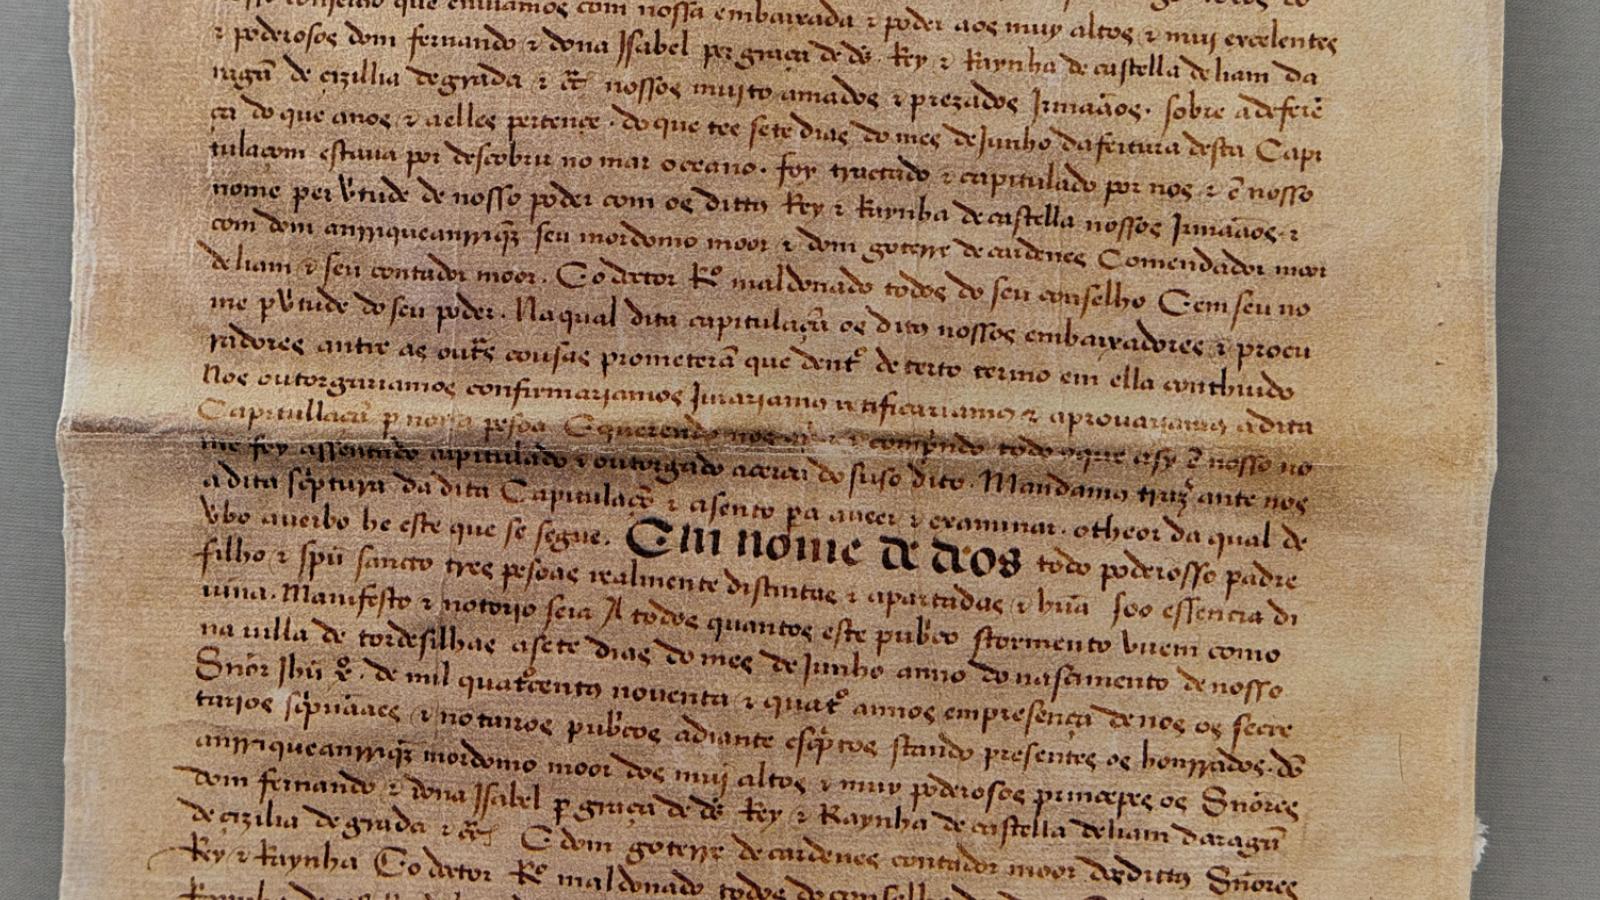 conselho que enviamos com nossa embaixada τ poder aos muy altos τ muy excelentes
τ poderosos dom fernando τ dona Isabel per graça de ds̃ Rey τ Raynha de castella de liam da
ragã de cizillia de grada τ cr̃ nossos muito amados τ prezados Irmaãos. sobre a deferẽ
ça do que a nos τ a elles pertençe. do que tee sete dias do mes de Junho da feitura desta Capi
tulaçom estava por descobrir no mar oceano. foy tractado τ capitulado por nos τ ẽ nosso
nome per vtude de nosso poder com os dittos Rey τ Raynha de castella nossos Irmaãos. τ
com dom anrriqueanrriqz̃ seu mordomo moor τ dom goterre de cardenes Comendador mor
de liam τ seu contador moor. E o doctor Ro maldonado todos do seu conselho E em seu no
me p vtude do seu poder. Na qual dita capitulaçã os ditos nossos embaixadores τ procu
radores antre as outrs cousas prometerã que dentro de certo termo em ella conthiudo
Nos outorgariamos confirmariamos Jurariamos retificariamos τ aprovariamos a dita
Capitullaçã p nossa pesoa E querendo nos τ comprindo todo o que asy ẽ nosso no
me foy assentado capitulado τ outorgado acerca do suso dito. Mandamos trazer ante nos
a dita scp̃tura da dita Capitulaçõ τ asento pa a veer τ examinar. o theor da qual de
vbo a verbo he este que se segue. Em nome de deos todo poderosso padre
filho τ spũ sancto tres pesoas realmente distintas τ apartadas τ hũa soo essencia di
uina. Manifesto τ notorio seia A todos quantos este pubco stormento virem como
na villa de tordesilhas a sete dias do mes de Junho anno do nascimento de nosso
Sñor Jhũ xo. de mil quatrocentos noventa τ quatro annos em presença de nos os secre
tarios scp̃vãaes τ notairos pubcos adiante escp̃tos stando presentes os honrrados. dõ
anrriqueanrriqz̃ mordomo moor dos muj altos τ muy poderosos princepes os Sñores
dom fernando τ dona Isabel p graça de ds̃ Rey τ Raynha de castella de liam daragã
de cizilia de grada τ cr̃ E dom goterre de cardenes contador moor dos dittos Sñores
Rey τ Raynha E o doctor Ro maldonado todos do conselho dos